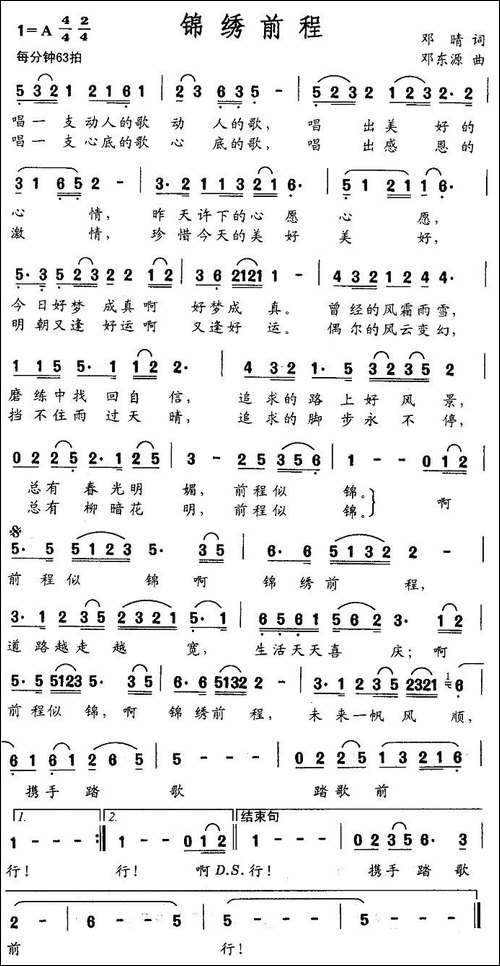 锦绣前程
1=A 4/4 2/4
每分钟63拍
邓 晴 词
邓东源 曲
5 3 2 1 2 1 6 1 2 3 6 3 5 - 5 2 3 2 1 2 3 2· 2
唱一支动人的歌 动 人的歌, 唱 出美 好的
唱一支心底的歌 心 底的歌, 唱 出感 恩的
3 1 6 5 2 - 3· 2 1 1 3 2 1 6· 5 1 2 1 1 6·
心 情, 昨 天许下的心愿 心 愿,
激 情, 珍 惜今天的美好 美 好,
5· 3 5 2 3 2 2 1 2 3 6 2121 1 - 4 3 2 1 2 4·
今日好梦 成真啊 好梦成 真。 曾经的风霜雨雪,
明朝又逢 好运啊 又逢好 运。 偶尔的风云变幻,
1 1 5 5· 1 1 2 2· 4 3 2 1· 5 3 2 3 5
磨练中找 回自 信, 追求的路上好 风 景,
挡不住雨 过天 晴, 追求的脚步永 不 停,
0 2 2 5 2· 1 2 5 3 - 2· 2 5 3 5 6 1 - - 0 1 2
总有 春光明 媚, 前程似 锦。 啊
总有 柳暗花 明, 前程似 锦。
5· 5 5 1 2 3 5· 3 5 6· 6 5 1 3 2 2 -
前 程似 锦 啊 锦 绣前 程,
3· 1 2 2 5 2 3 2 1 5· 1 6 5 6 1 5 6 2 3· 1 2
道 路越走 越 宽, 生活天天喜 庆; 啊
5· 5 5123 5· 3 5 6· 6 5132 2 - 3· 1 2 3 5 2321 6·
前 程似 锦, 啊 锦 绣前 程, 未来一帆 风 顺,
6 1 6 1 2 6 5 5 - - - 0 5 1 3 2 1 6
携手 踏 歌 踏歌 前
1. 2. 结束句
1 - - - 1 - - 0 1 2 1 - - - 0 2 3 5 6· 3
行! 行! 啊D.S.行! 携手 踏歌
2 - 6 - 5 - - 5 5 - - -
前 行!